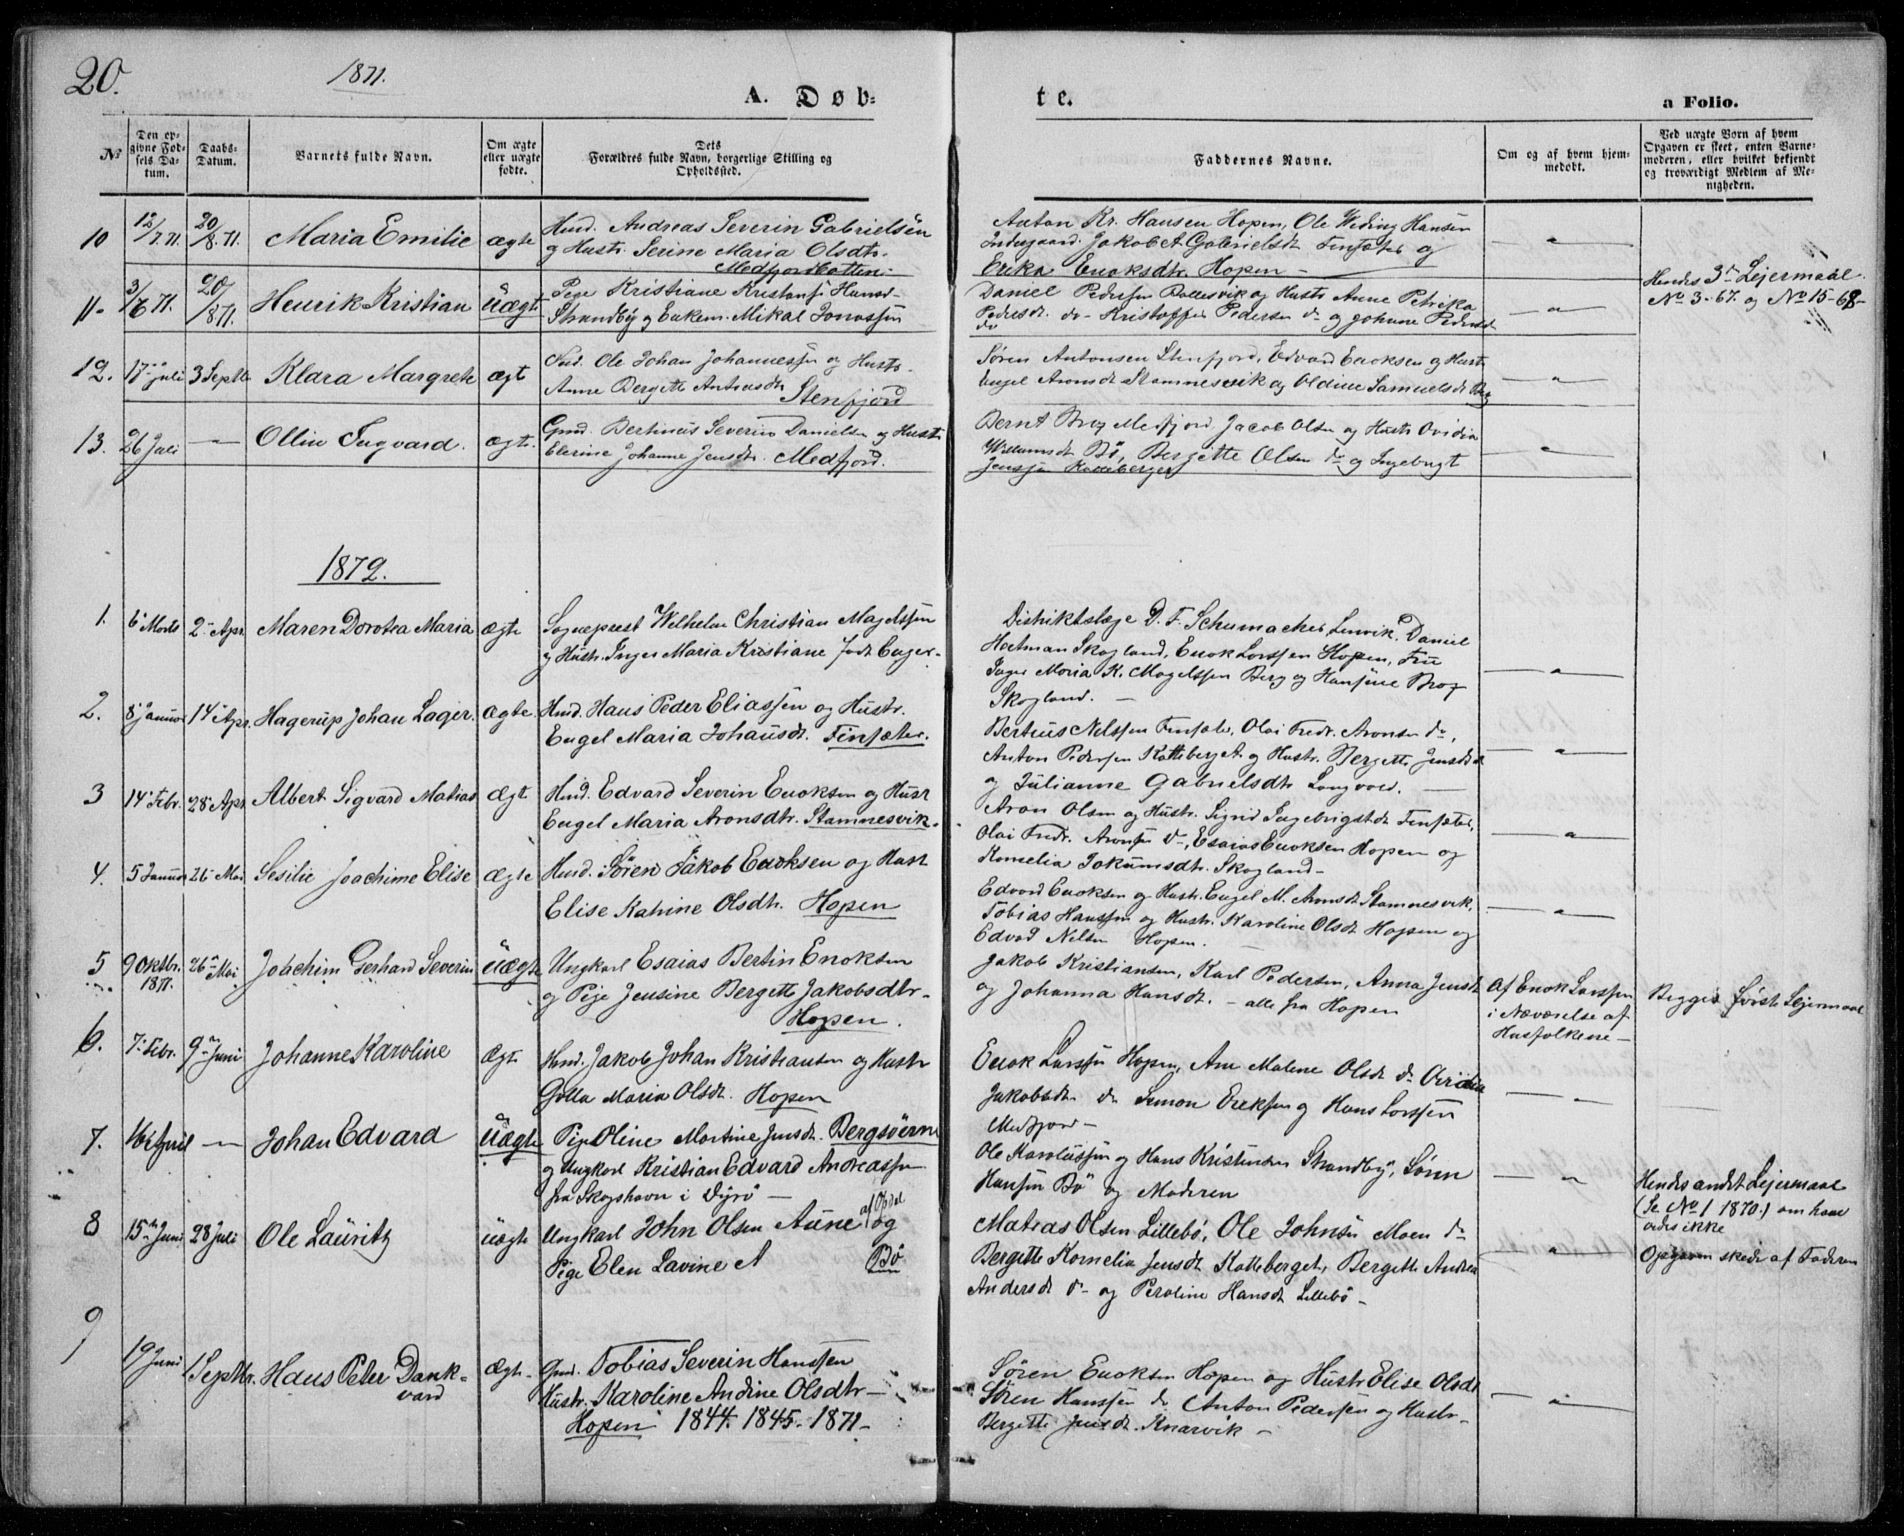 20.
1871.
A. Døb-
te.
a Folio.
No
Den opgivne Fødsels Datum.
Daabs-Datum.
Barnets fulde Navn.
Om ægte eller uægte fødte.
Dets Forældres fulde Navn, borgerlige Stilling og Opholdssted.
Faddernes Navne.
Om og af hvem hjemmedøbt.
Ved uægte Børn af hvem Opgaven er skeet, enten Barnemoderen, eller hvilket bekjendt og troværdigt Medlem af Menigheden.
10 12/7.71. 20/8.71. Maria Emilie ægte
Hmd. Andreas Severin Gabrielsen
og Hustr. Serine Maria Olsdtr.
Medfjordbotten.
Anton Kr. Hansen Hopen, Ole Weding Hansen
Jakob A. Gabrielsdt. Finsæter og
Erika Enoksdtr. Hopen —
11. 3/6 71. 20/8 71. Henrik Kristian üægt.
Pige Kristiane Hansd.
Strandby og Enkem. Mikal Jonassen
Daniel Pedersen Ballesvik og Hustr Anne Petrika
Pedersdt. do Kristoffer Pedersen do og Johanne Pedersd
do
Hendes 3die Lejermaal
No 3-67. og No 15-68-
12. 17de juli 3 Septbr Klara Margrete ægt
Ole Johan Johannessen og Hustr.
Anne Bergette Antonsdt Stenfjord
Søren Antonsen Stenfjord, Edvard Enoksen og Hustr
Engel Aronsdt Stamnesvik og Oldine Samuelsdt Berg
13. 26 Juli — Ollin Ingvard. ægt.
Gmd. Bertinus Severin Danielsen og Hustr
Elerine Johanne Jensdt. Medfjord.
Bernt Brox Medfjord, Jacob Olsen og Hustr Ovidia
Willumsdt Bö, Bergette Olsen do og Ingebrigt
Jensen Katteberget
1872.
1. 6te Marts 2den Apr. Maren Dorotea Maria ægte
Sogneprest Wilhelm Christian Magelssen
og Hustr. Inger Maria Kristiane født Enger.
Distriktslæge D. F. Schumacher Lenvik, Daniel
Hartman Skogland, Enok Larssen Hopen, Frü
Inger Maria K. Magelssen Berg og Hansine Brox
Skogland. —
2. 8de Januar 14de Apr. Hagerup Johan Lager. ægte.
Hmd. Hans Peder Eliassen og Hustr.
Engel Maria Johansdt. Finsæter.
Bertius Nilssen Finsæter, Olai Fredr. Aronsen do,
Anton Pedersen Katteberget og Hustr. Bergette Jensdt
og Julianne Gabrielsdtr Langvold. —
3 14de Febr. 28de Apr Albert Sigvard Matias ægt.
Hmd. Edvard Severin Enoksen og Hustr
Engel Maria Aronsdtr. Stamnesvik.
Aron Olsen og Hustr. Sigrid Ingebrigtsdt Finsæter,
Olai Fredr. Aronsen do, Esaias Enoksen Hopen og
Kornelia Jokumsdtr. Skogland—
4. 5 Januar 26de Mai Sesilie Joachime Elise ægte
Hmd. Sören Jakob Enoksen og Hustr
Elise Katrine Olsdtr. Hopen
Edvard Enoksen og Hustr. Engel M. Aronsdt Stamnesvik,
Tobias Hanssen og Hustr. Karoline Olsdt Hopen og
Edvard Nilsen Hopen.
5 9 Oktbr. 1871. 26de Mai Joachim Gerhard Severin üægte
Ungkarl Esaias Bertin Enoksen
og Pige Jensine Bergette Jakobsdtr.
Hopen.
Jakob Kristiansen, Karl Pedersen, Anna Jensdt
og Johanna Hansdt. — alle fra Hopen
Af Enok Larssen
i Nærværelse af
Husfolkene —
Begges første Lejermaal
6. 7de Febr. 9de Juni Johanne Karoline Ægt.
Hmd. Jakob Johan Kristiansen og Hustr
Golla Maria Olsdt. Hopen
Enok Larssen Hopen, Ane Malene Olsdt do Ovidia
Jakobsdtr do Simon Eriksen og Hans Larssen
Medfjord —
7. 16de April — Johan Edvard üægte
Pige Oline Martine Jensdt. Bergsöerne
og Ungkarl Kristian Edvard Andreassen
fra Skogshavn i Dyrö —
Ole Karolüssen og Hans Kristensen Strandby, Sören
Hansen Bö og Moderen
Hendes andet Lejermaal
(Se No 1 1870.) om hans
vides ikke
8 15de Juni 28 Juli Ole Lauritz üægte
Ungkarl John Olsen Aune af Opdal og
Pige Elen Lavine A Bö
Matias Olsen Lillebö, Ole Johnsen Moen do
Bergette Kornelia Jensdt Katteberget, Bergette Andrea
Andersdt do og Peroline Hansdt Lillebö —
Opgaven skede af Faderen
9 19 Juni 1 Septbr. Hans Peter Dank-
vard ægte.
Gmd. Tobias Severin Hanssen
Hustr. Karoline Andine Olsdtr —
Hopen 1844. 1845. 1871—
Søren Enoksen Hopen og Hustr Elise Olsdt
Sören Hanssen do Anton Pedersen og Hustr.
Bergette Jensdt. Knarvik —